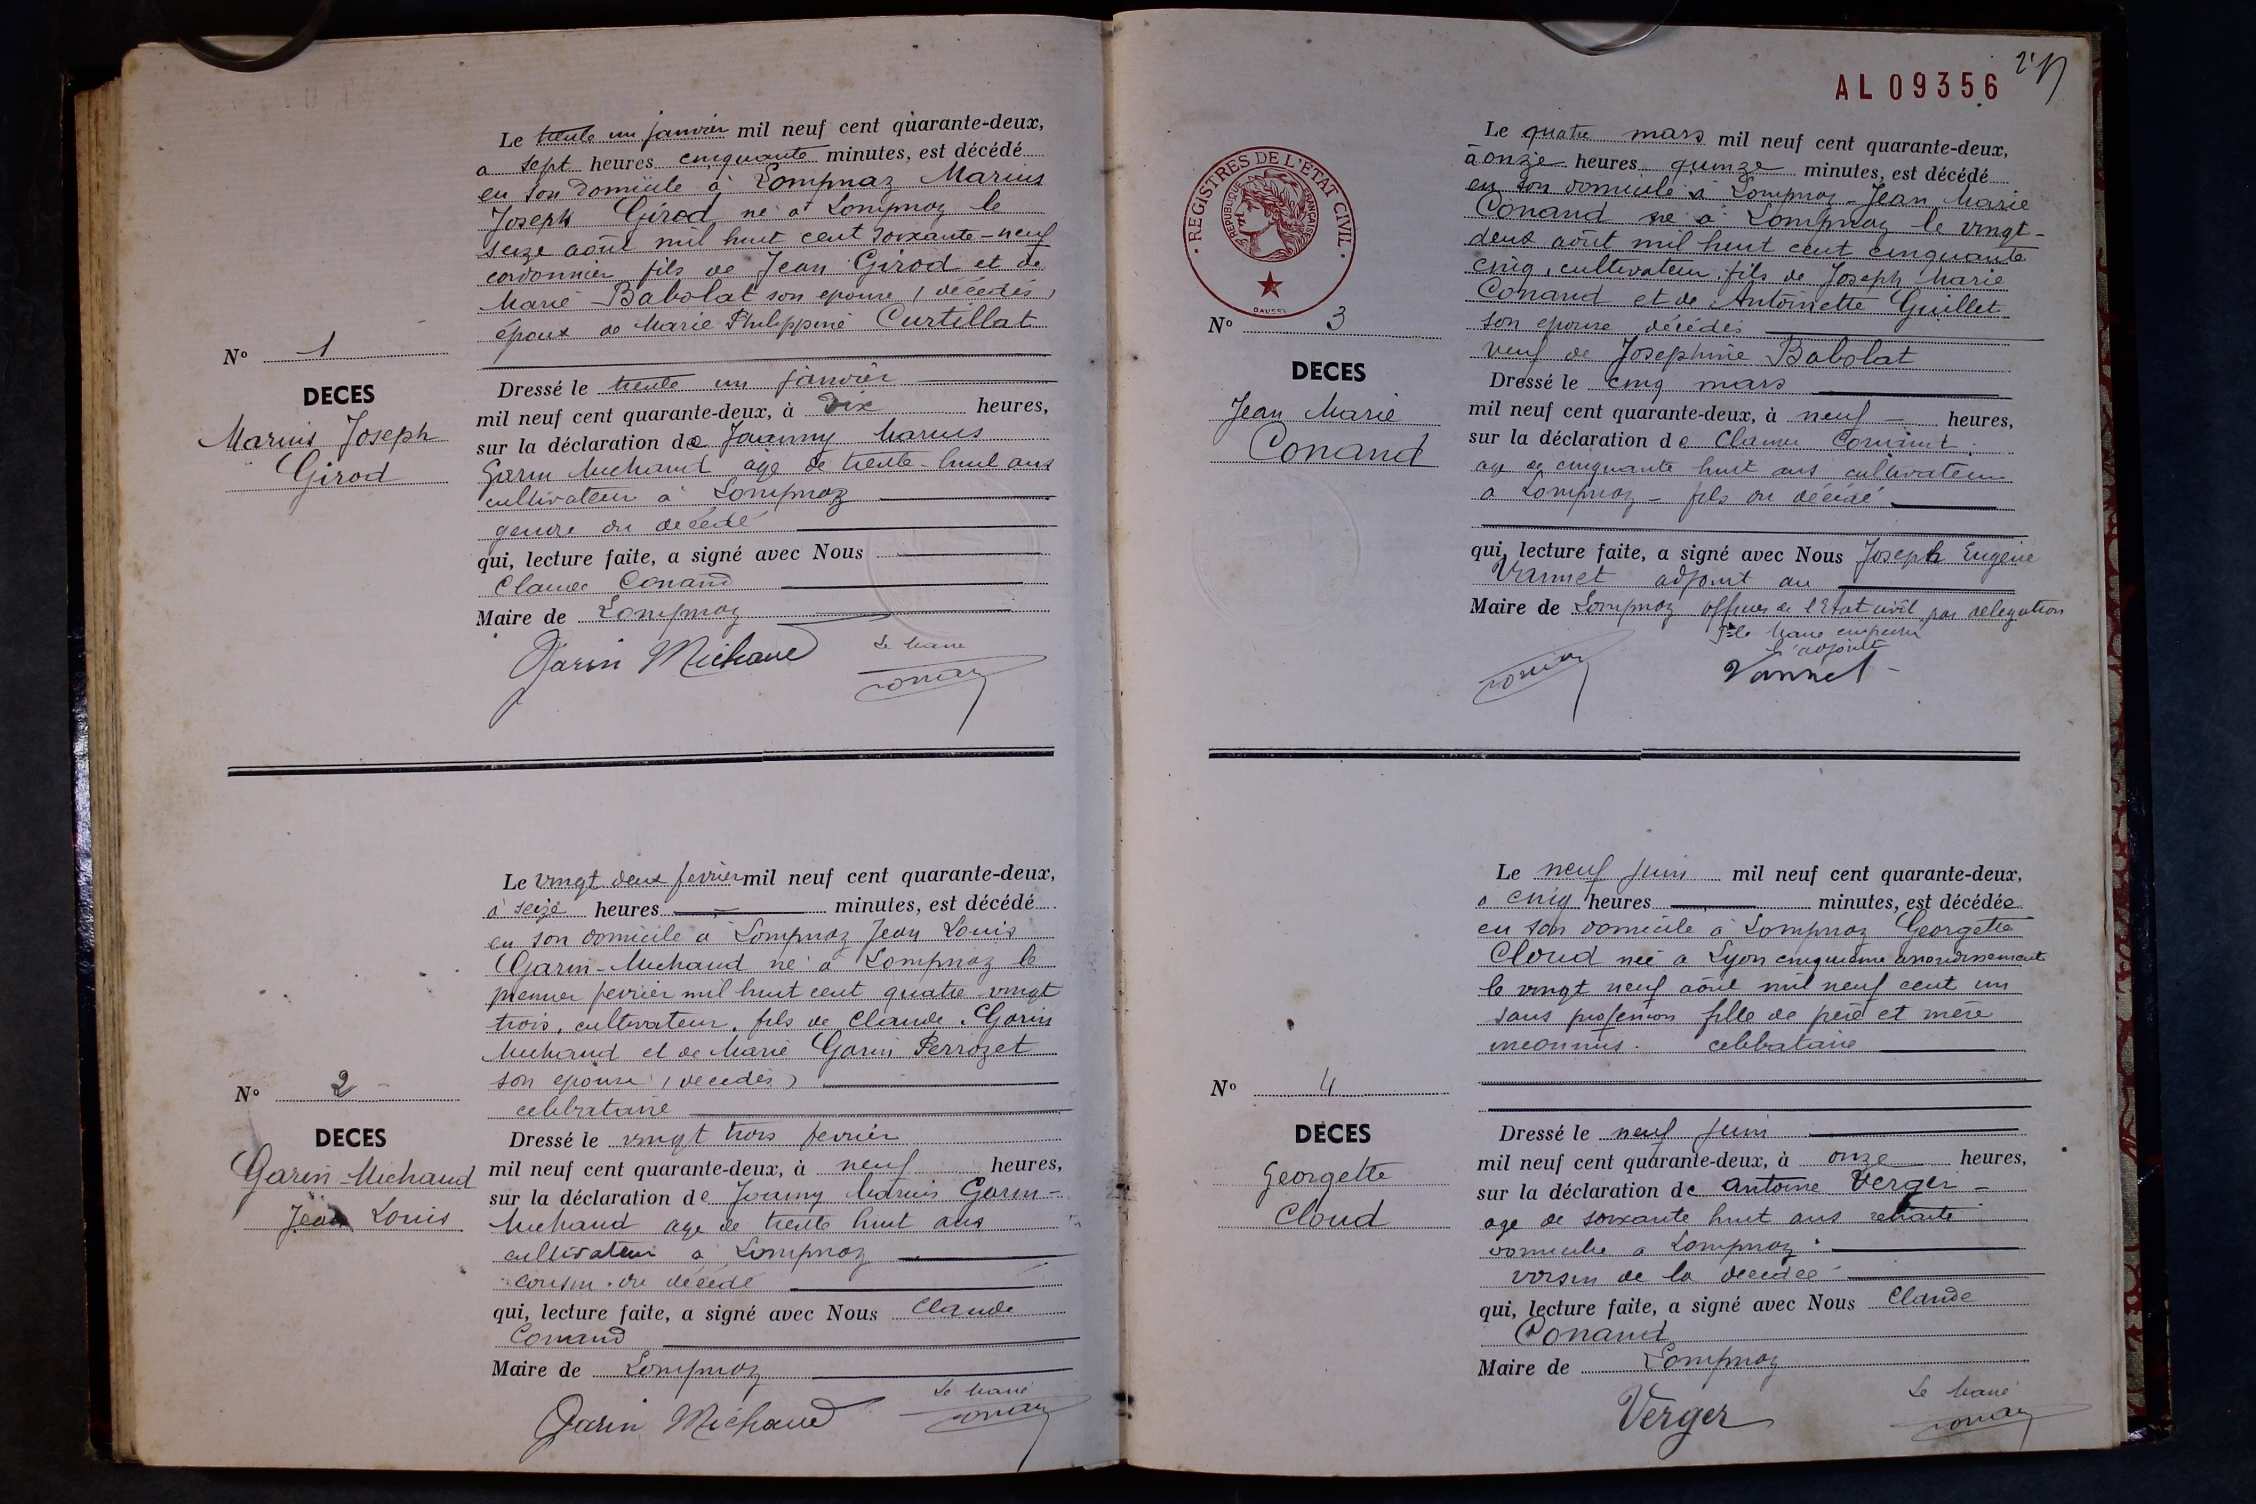 Le trente un janvier mil neuf cent quarante-deux,
a sept heures cinquante minutes, est décédé
en son domicile à Lompnaz Marius
Joseph Girod né à Lompnaz le
seize août mil huit cent soixante-neuf
cordonnier fils de Jean Girod et de
Marie Babolat son epouse (décédés)
époux de Marie Philippine Curtillat
N° 1
DECES
Marius Joseph
Girod
Dressé le trente un janvier
mil neuf cent quarante-deux, à Dix heures,
sur la déclaration de Joanny Marius
Garin Michaud agé de trente-huit ans
cultivateur à Lompnaz
gendre du décédé
qui, lecture faite, a signé avec Nous
Claude Conand
Maire de Lompnaz
Garin Michaud
Le Maire
Conand
Le vingt deux fevrier mil neuf cent quarante-deux,
à seize heures minutes, est décédé
en son domicile à Lompnaz Jean Louis
Garin-Michaud né à Lompnaz le
premier fevrier mil huit cent quatre-vingt
trois, cultivateur, fils de Claude Garin
Michaud et de Marie Garin Perrozet
son epouse (decedés)
celibataire
N° 2
DECES
Garin-Michaud
Jean Louis
Dressé le vingt trois fevrier
mil neuf cent quarante-deux, à neuf heures,
sur la déclaration de Joanny Marius Garin-
Michaud age de trente huit ans
cultivateur a Lompnaz
cousin du décédé
qui, lecture faite, a signé avec Nous Claude
Conand
Maire de Lompnaz
Garin Michaud
Le Maire
Conand
AL 09356
REGISTRES DE L'ETAT CIVIL
REPUBLIQUE FRANÇAISE
Le quatre mars mil neuf cent quarante-deux,
à onze heures quinze minutes, est décédé
en son domicile à Lompnaz Jean Marie
Conand né à Lompnaz le vingt-
deux août mil huit cent cinquante
cinq, cultivateur, fils de Joseph Marie
Conand et de Antoinette Guillet
son epouse décédés
veuf de Josephine Babolat
N° 3
DECES
Jean Marie
Conand
Dressé le cinq mars
mil neuf cent quarante-deux, à neuf heures,
sur la déclaration de Claude Conand
age de cinquante huit ans cultivateur
a Lompnaz - fils du décédé
qui, lecture faite, a signé avec Nous Joseph Eugène
Vannet adjoint au
Maire de Lompnaz officier de l'Etat civil par delegation
Pr le Maire empeché
L'adjoint
Conand
Vannet
Le neuf juin mil neuf cent quarante-deux,
a cinq heures minutes, est décédée
en son domicile à Lompnaz Georgette
Cloud née a Lyon cinquieme arrondissement
le vingt neuf août mil neuf cent un
sans profession fille de père et mère
inconnus. celibataire
N° 4
DECES
Georgette
Cloud
Dressé le neuf juin
mil neuf cent quarante-deux, à onze heures,
sur la déclaration de Antoine Verger
age de soixante huit ans retraité
domicilié a Lompnaz
voisin de la decedée
qui, lecture faite, a signé avec Nous Claude
Conand
Maire de Lompnaz
Verger
Le Maire
Conand